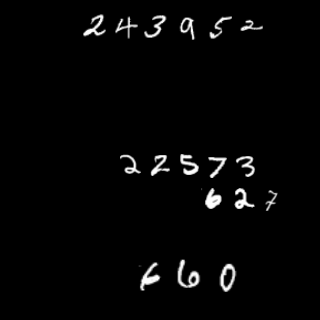 243952
22573
627
660